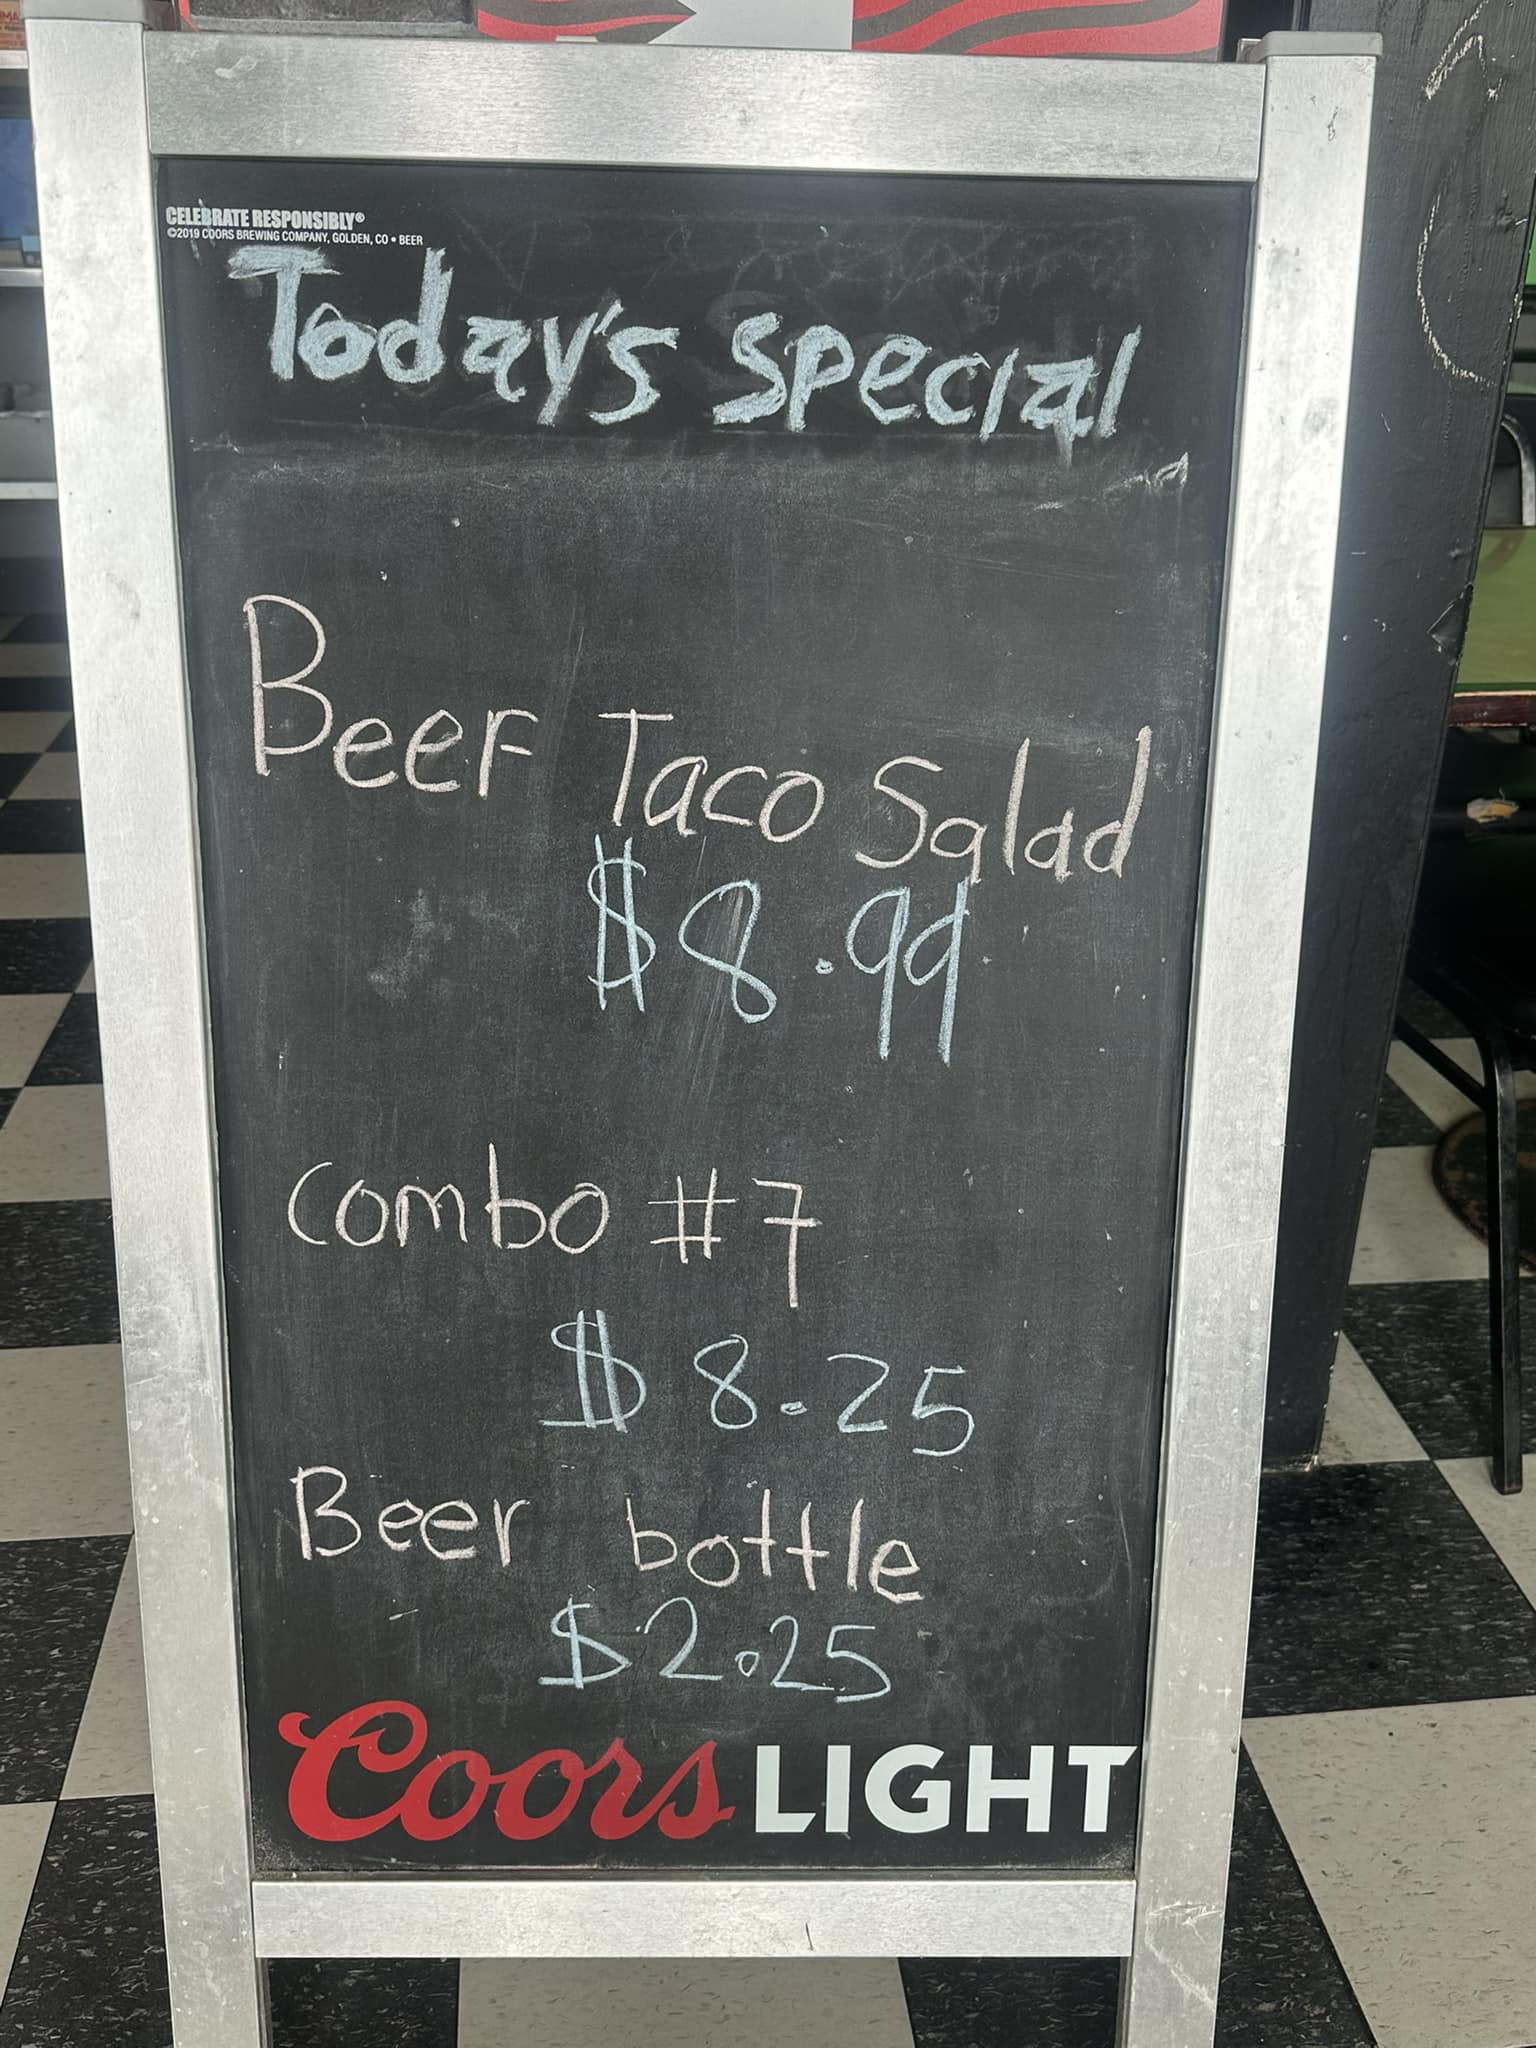 CELEBRATE RESPONSIBLY®
©2019 COORS BREWING COMPANY, GOLDEN, CO • BEER
Today's Special
Beef Taco Salad
$8.99
Combo #7
$8.25
Beer bottle
$2.25
Coors LIGHT